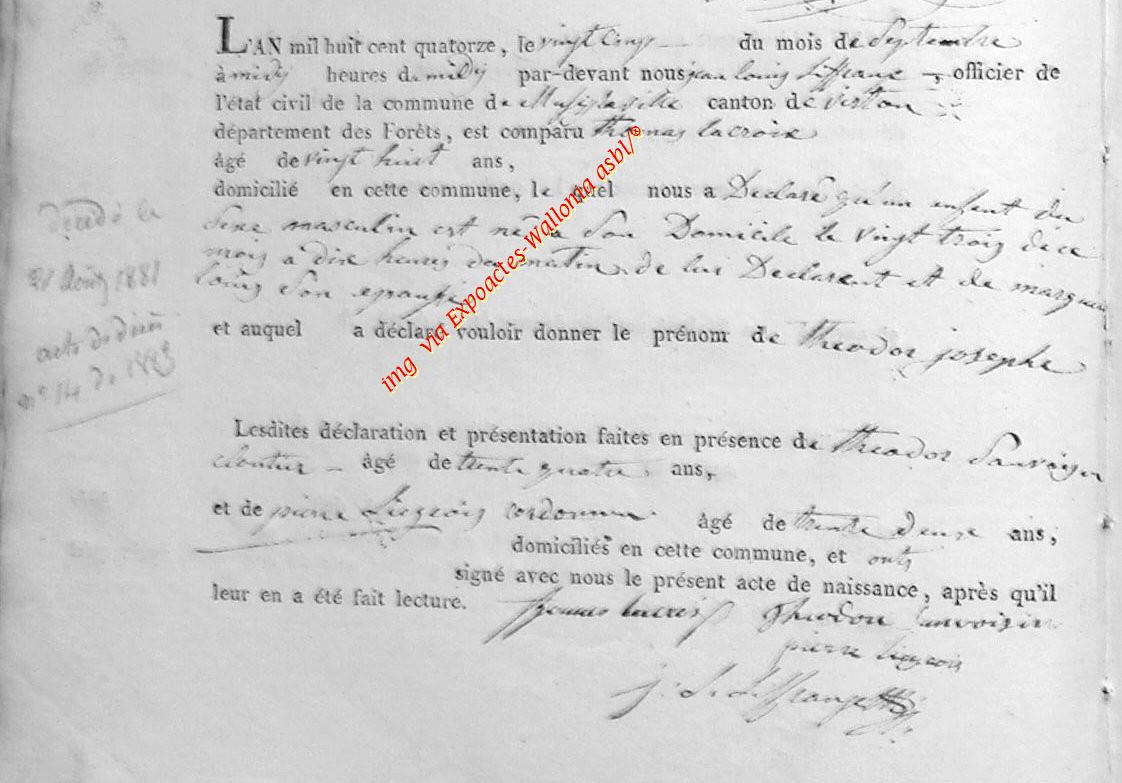 L'AN mil huit cent quatorze, le vingt Cinq du mois de Septembre
à midy heures d midy par-devant nous jean louis , officier de
l'état civil de la commune de canton de virton
département des Forêts, est comparu thomas lacroix
âgé de vingt huit ans,
domicilié en cette commune, le quel nous a Declaré qu'un enfent du
Sexe masculin est né a Son Domicile le vingt trois de ce
mois a dix heures du matin de lui Declarent et de
louis Son epause
et auquel a déclaré vouloir donner le prénom de theodor josephe
Lesdites déclaration et présentation faites en présence de theodor Sanvoisin
cloutier âgé de trente quatre ans,
et de pierre Liegeois cordonnier âgé de trente deux ans,
domiciliés en cette commune, et onts
signé avec nous le présent acte de naissance, après qu'il
leur en a été fait lecture.
thomas lacroix theodor Sanvoisin
pierre liegeois
décédé le
21 Août 1881
acte de
n° 14 de 1883
img via Expoactes-Wallonia asbl/©